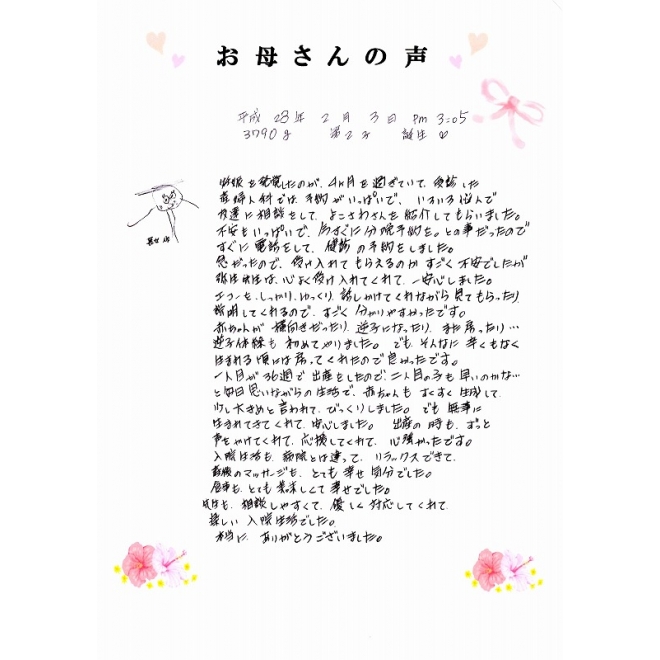 お母さんの声
平成 28年 2月 3日 pm 3:05
3790g 第2子 誕生 ♡
妊娠を発覚したのが、4ヶ月を過ぎていて、受診した
産婦人科では、予約がいっぱいで、いろいろ悩んで
友達に相談をして、よこさわさんを紹介してもらいました。
不安もいっぱいで、今すぐに分娩予約を。との事だったので
すぐに電話をして、健診の予約をしました。
急だったので、受け入れてもらえるのか すごく不安でしたが
先生は、心よく受け入れてくれて、一安心しました。
エコーも、しっかり、ゆっくり、話しかけてくれながら見てもらったり、
説明してくれるので、すごく 分かりやすかったです。
赤ちゃんが 横向きだったり、逆子になったり、また戻ったり…
逆子体操も 初めてやりました。 でも、そんなに 辛くもなく
生まれる頃には戻ってくれたので良かったです。
一人目が 36週で 出産をしたので、二人目の子も 早いのかな…
と毎日思いながらの生活で、赤ちゃんも すくすく 生長して、
少し大きめと言われて、びっくりしました。 でも 無事に
生まれてきてくれて、安心しました。 出産の時も、ずっと
声をかけてくれて、応援してくれて、心強かったです。
入院生活も、病院とは違って、リラックスできて、
産後のマッサージも、とても 幸せ 気分でした。
食事も、とても 美味しくて 幸せでした。
先生も、相談しやすくて、優しく 対応してくれて、
楽しい 入院生活でした。
本当に、ありがとうございました。